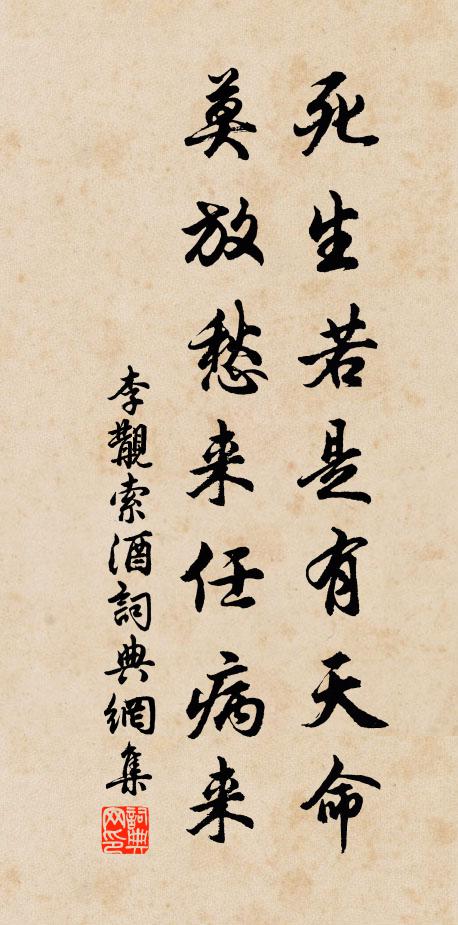 死生若是有天命
莫放愁来任病来
李觏索酒詞典網集
詞典网印